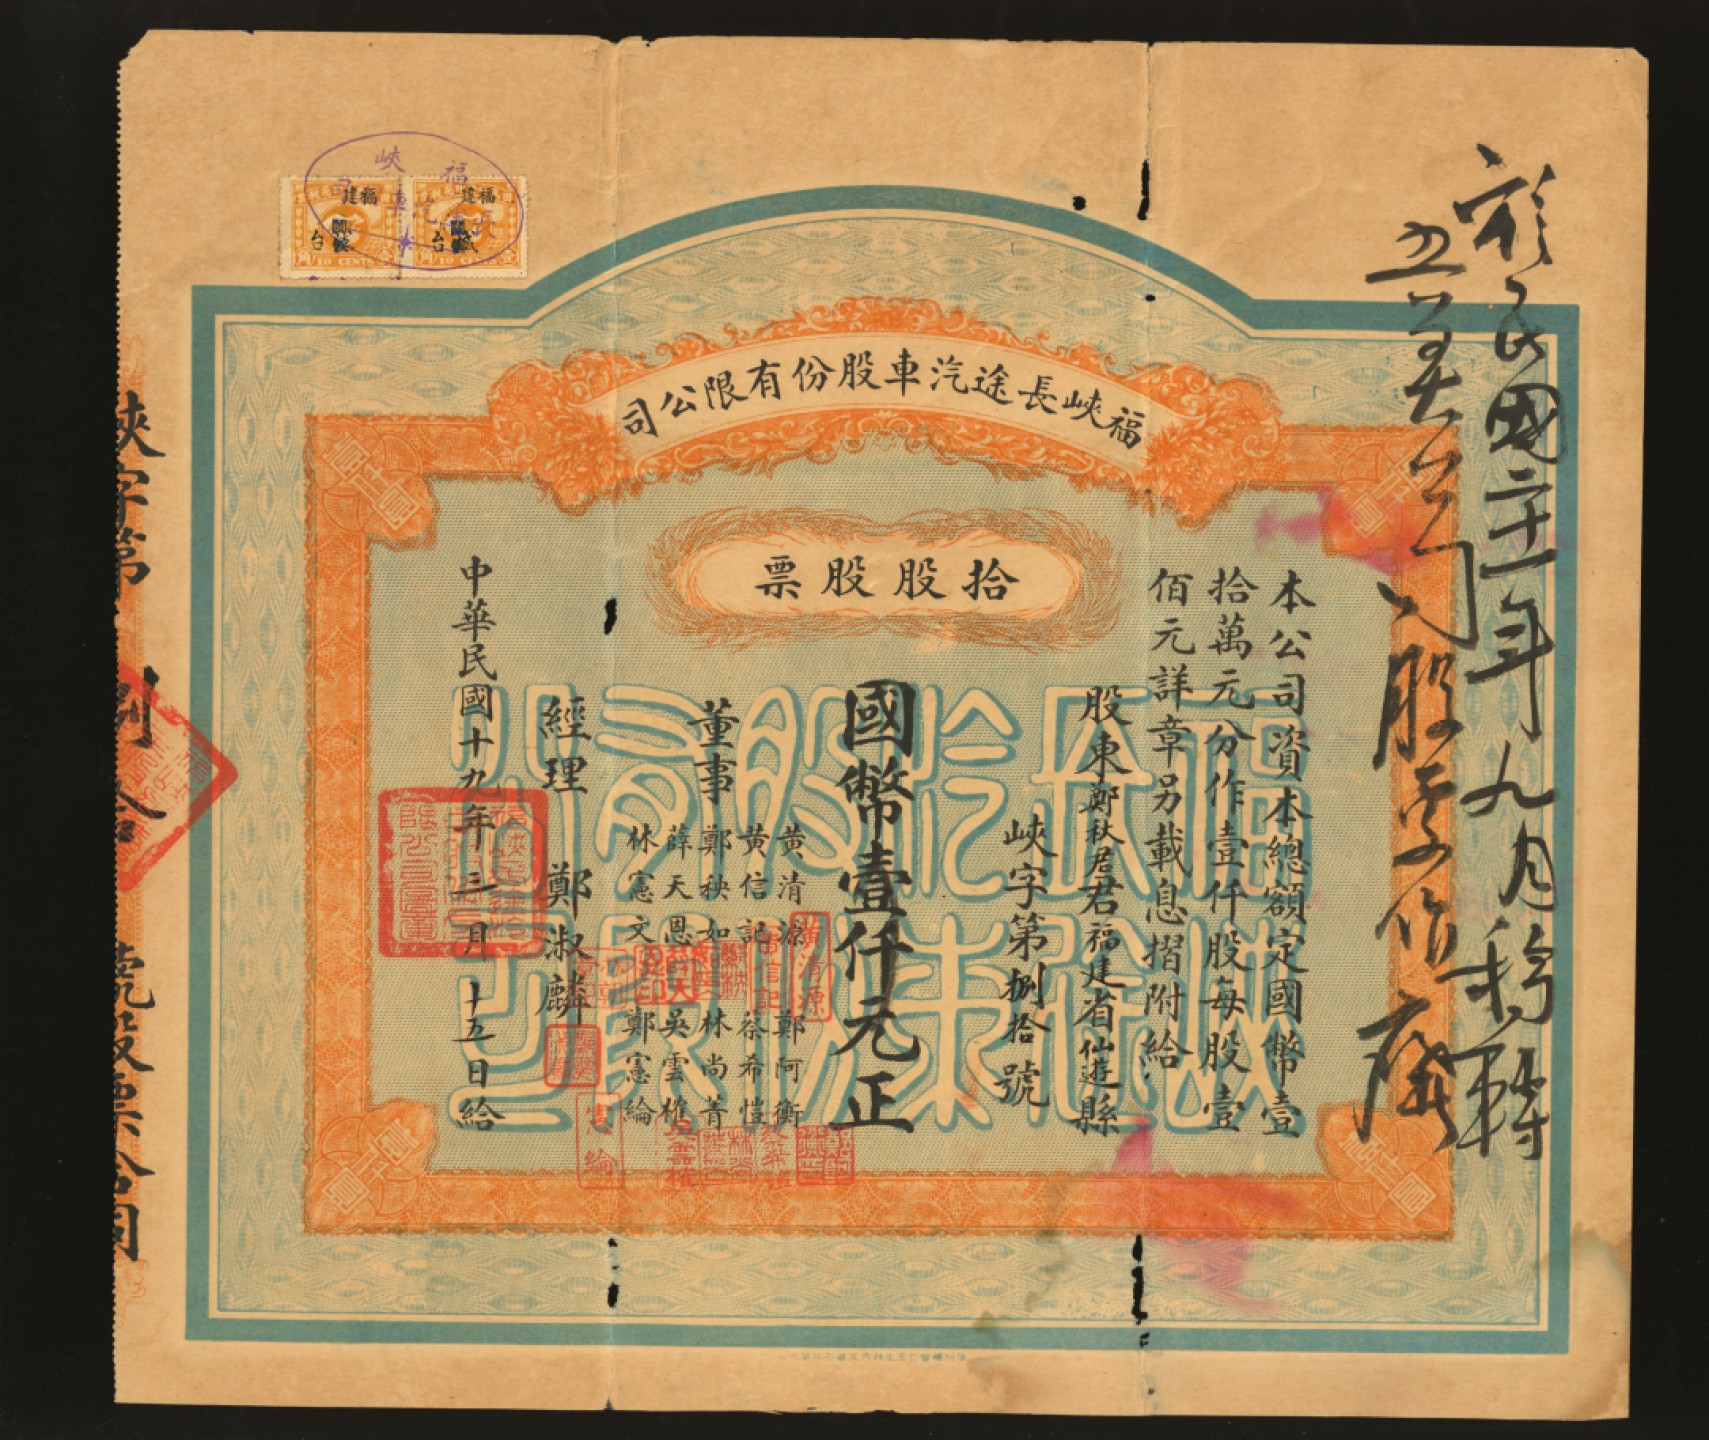 福峽長途汽車股份有限公司
拾股股票
本公司資本總額定國幣壹
拾萬元分作壹仟股每股壹
佰元詳章另載息摺附給
股東鄭秋君君福建省仙遊縣
峽字第捌拾號
國幣壹仟元正
董事
黃清源 鄭阿衡
黃信記 蔡希愷
鄭秧如 林尚菁
薛天恩 吳雲榷
林憲文 鄭憲綸
經理 鄭淑麟
中華民國十九年三月十五日給
福建
福建
角 10 CENTS
10 CENTS 壹
民國二十一年九月移轉
公司股票作廢
峽字第
捌拾
號股票拾同
黃清源
黃信記
憲綸